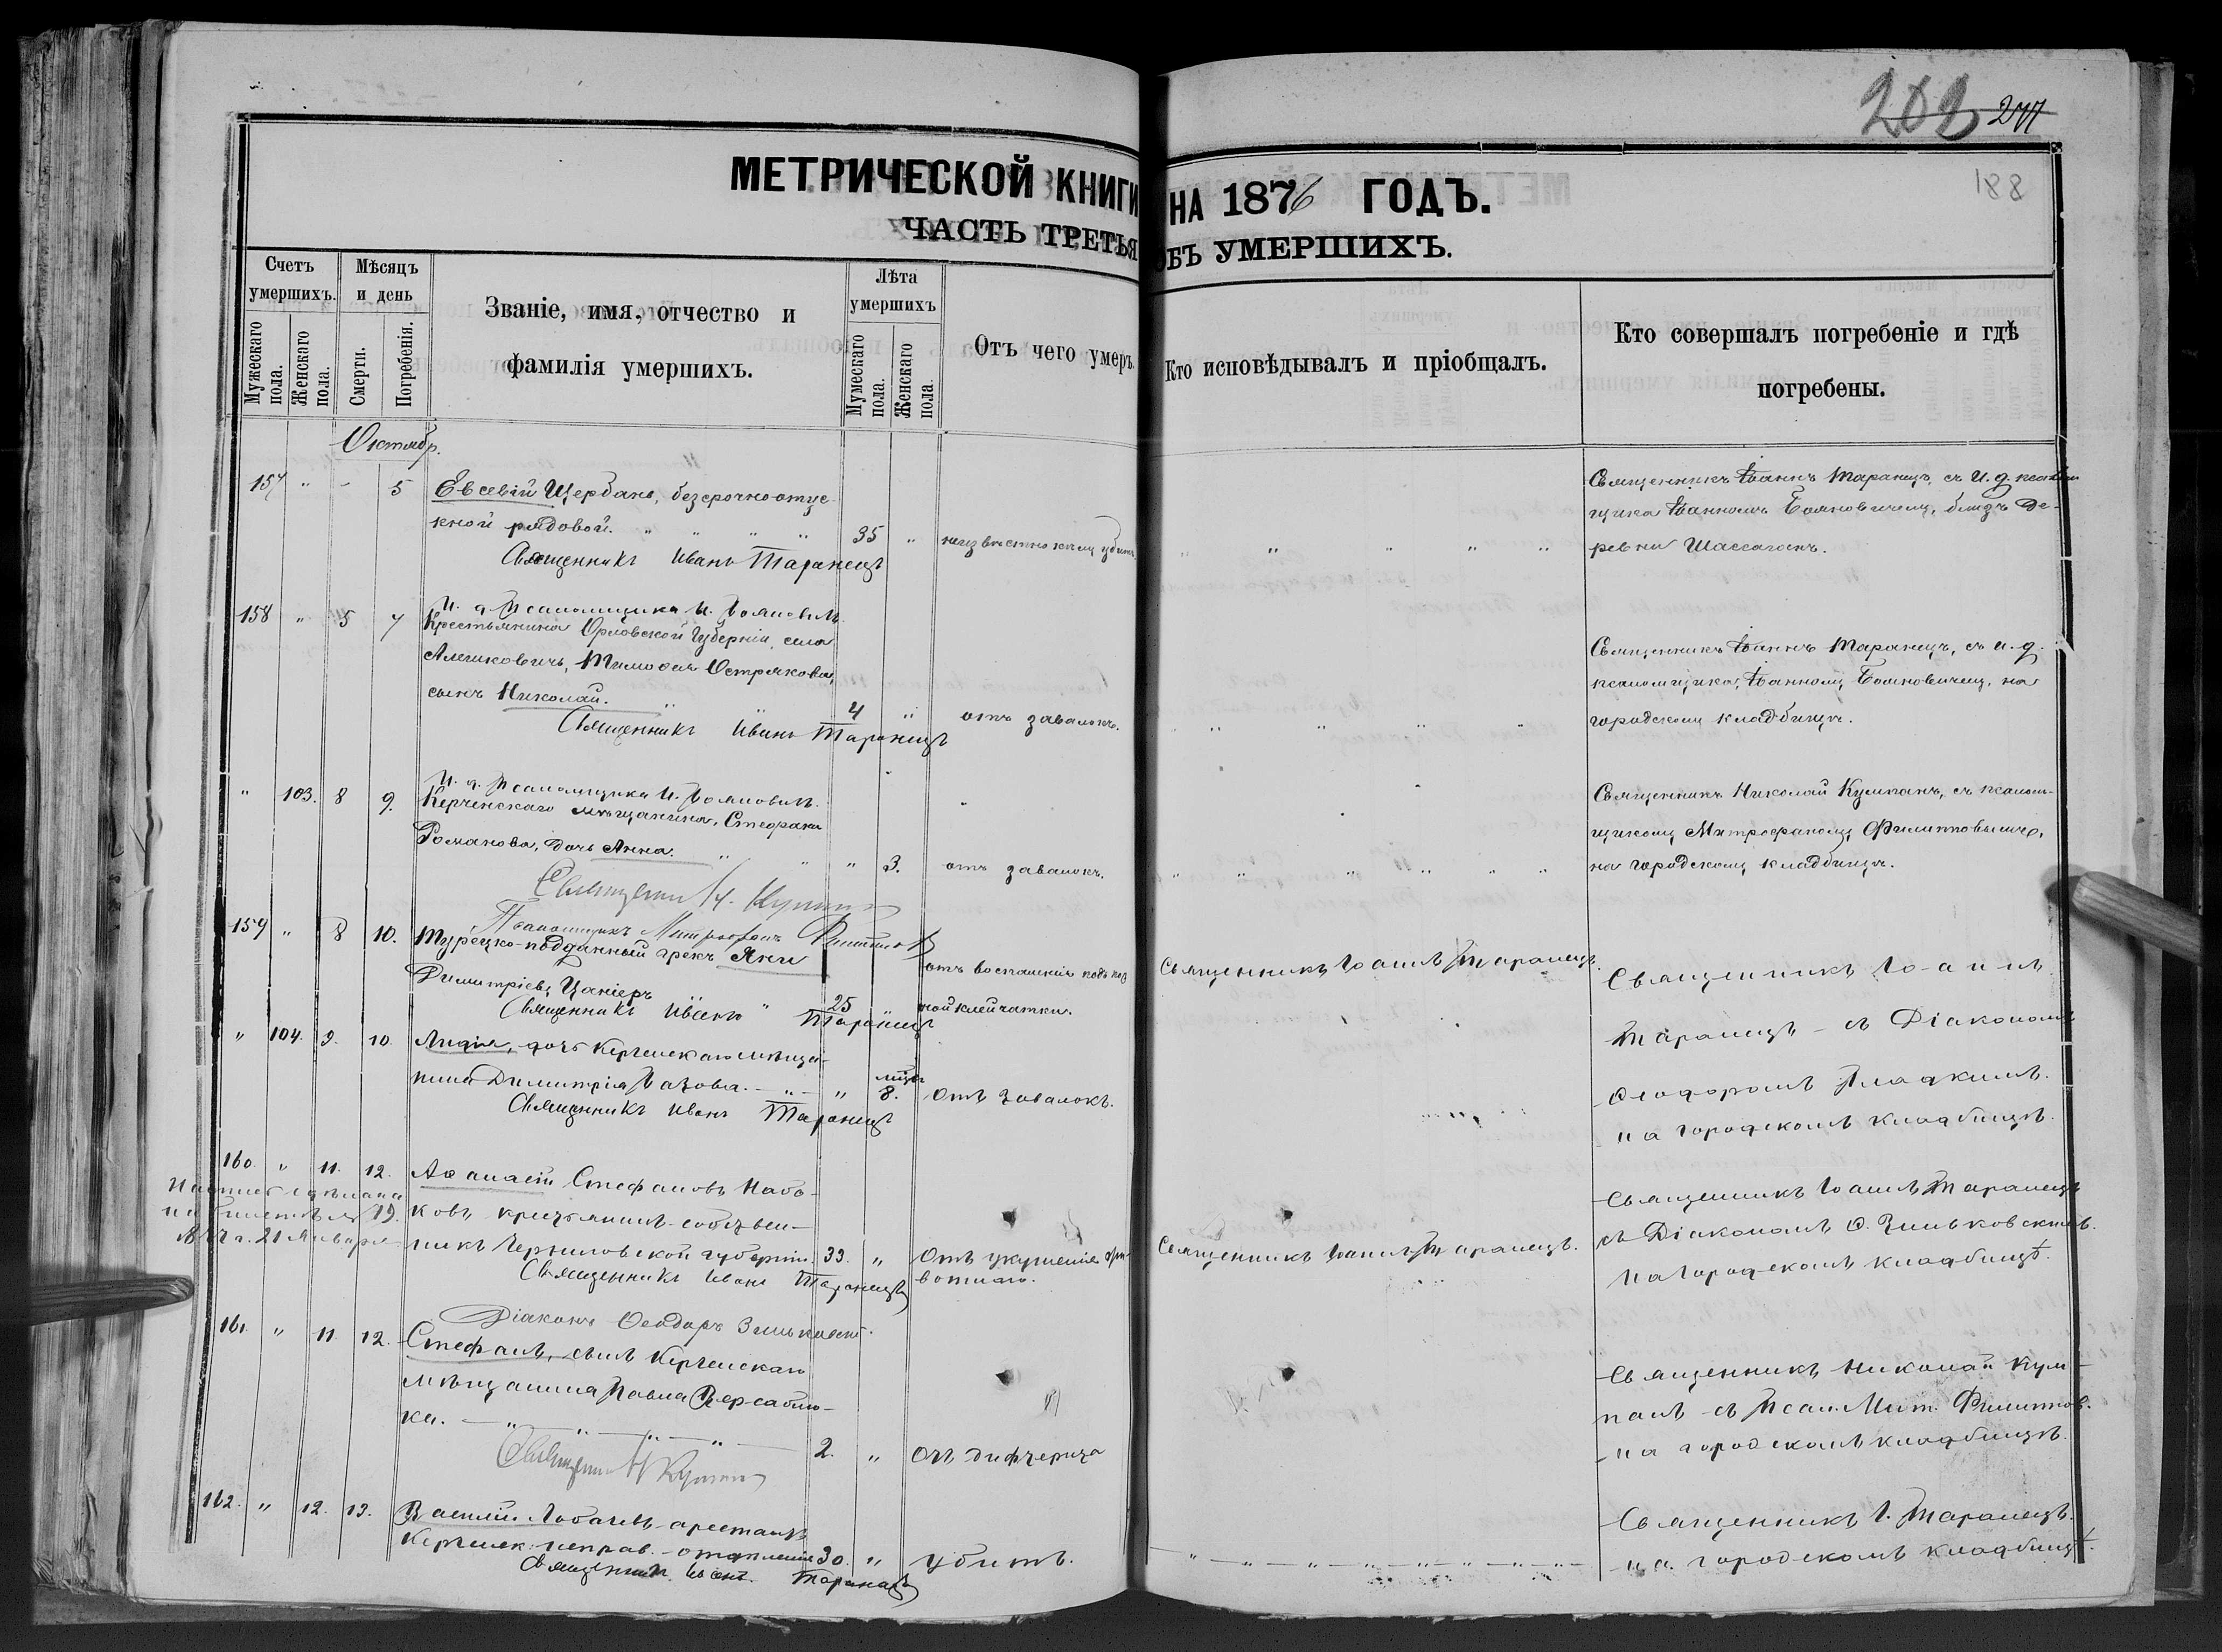 202 277
188
МЕТРИЧЕСКОЙ КНИГИ НА 1876 ГОДЪ.
ЧАСТЬ ТРЕТЬЯ ОБЪ УМЕРШИХЪ.
Счетъ умершихъ.
Мужескаго пола.
Женскаго пола.
Мѣсяцъ и день
Смерти.
Погребенія.
Званіе, имя, отчество и
фамилія умершихъ.
Лѣта умершихъ
Мужескаго пола.
Женскаго пола.
Отъ чего умеръ.
Кто исповѣдывалъ и пріобщалъ.
Кто совершалъ погребеніе и гдѣ
погребены.
Октябр.
157 " - 5 Евсевій Щербань, безсрочно-отпус-
кной рядовой. " " " " 35 " неизвѣстно кѣмъ убитъ.
Священникъ Иванъ Таранецъ
Священникъ Іоаннъ Таранецъ, съ И. д. псалом-
щика Іоанномъ Бояновичемъ, близъ де-
ревни
И. д. Псаломщика И. Бояновичъ
158 " 5 7 Крестьянина Орловской Губерніи, села
Тимофея Острякова,
сынъ Николай. " " 4 " отъ завалокъ.
Священникъ Иванъ Таранецъ
Священникъ Іоаннъ Таранецъ, съ и. д.
псаломщика, Іоанномъ Бояновичемъ, на
городскомъ кладбищѣ.
И. д. Псаломщика И. Бояновичъ.
" 103. 8 9. Керченскаго мѣщанина, Стефана
Романова, дочь Анна. " " " 3. отъ завалокъ.
Священникъ Н. Кумпанъ
Псаломщикъ Митрофанъ Филипповъ
Священникъ Николай Кумпанъ, съ псалом-
щикомъ Митрофаномъ Филипповымъ,
на городскомъ кладбищѣ.
159 " 8 10. Турецко-подданный грекъ Яни
Димитріевъ Цаніеръ 25 " отъ воспаленія подкож-
ной клейчатки.
Священникъ Иванъ Таранецъ
Священникъ Іоаннъ Таранецъ.
Священникъ Іоаннъ
" 104. 9. 10. Лидія, дочь Керченскаго мѣща-
нина Димитрія Базова. " " мѣс. 8. Отъ завалокъ.
Священникъ Иванъ Таранецъ
Таранецъ - съ Діакономъ
Ѳеодоромъ Гладкимъ.
на городскомъ кладбищѣ.
160. " 11. 12. Аѳанасій Стефановъ Набо-
ковъ крестьянинъ-собствен-
никъ Черниговской губерніи. 33. " Отъ укушенія
вотнаго.
Священникъ Иванъ Таранецъ
Діаконъ Ѳеодоръ Зиньковскій.
19.
21 Января
Священникъ Іоаннъ Таранецъ.
Священникъ Іоаннъ Таранецъ
съ Діакономъ Ѳ. Зиньковскимъ.
на Городскомъ кладбищѣ.
161. " 11. 12. Стефанъ, сынъ Керченскаго
мѣщанина Павла
ка. " " " " 2. " Отъ дифтерита
Священникъ Н Кумпанъ
Священникъ Николай Кум-
панъ съ Псал. Мит. Филиппов.
на городскомъ кладбищѣ.
162. " 12. 13. Василій Лобачевъ арестантъ
Керченск. исправ. отдѣленія 30. " убитъ.
Священникъ Иванъ Таранецъ
Священникъ І. Таранецъ.
на городскомъ кладбищѣ.